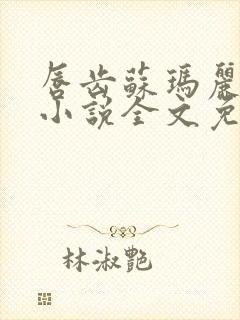 唇齿蘇瑪麗
小說全文免
林淑艷